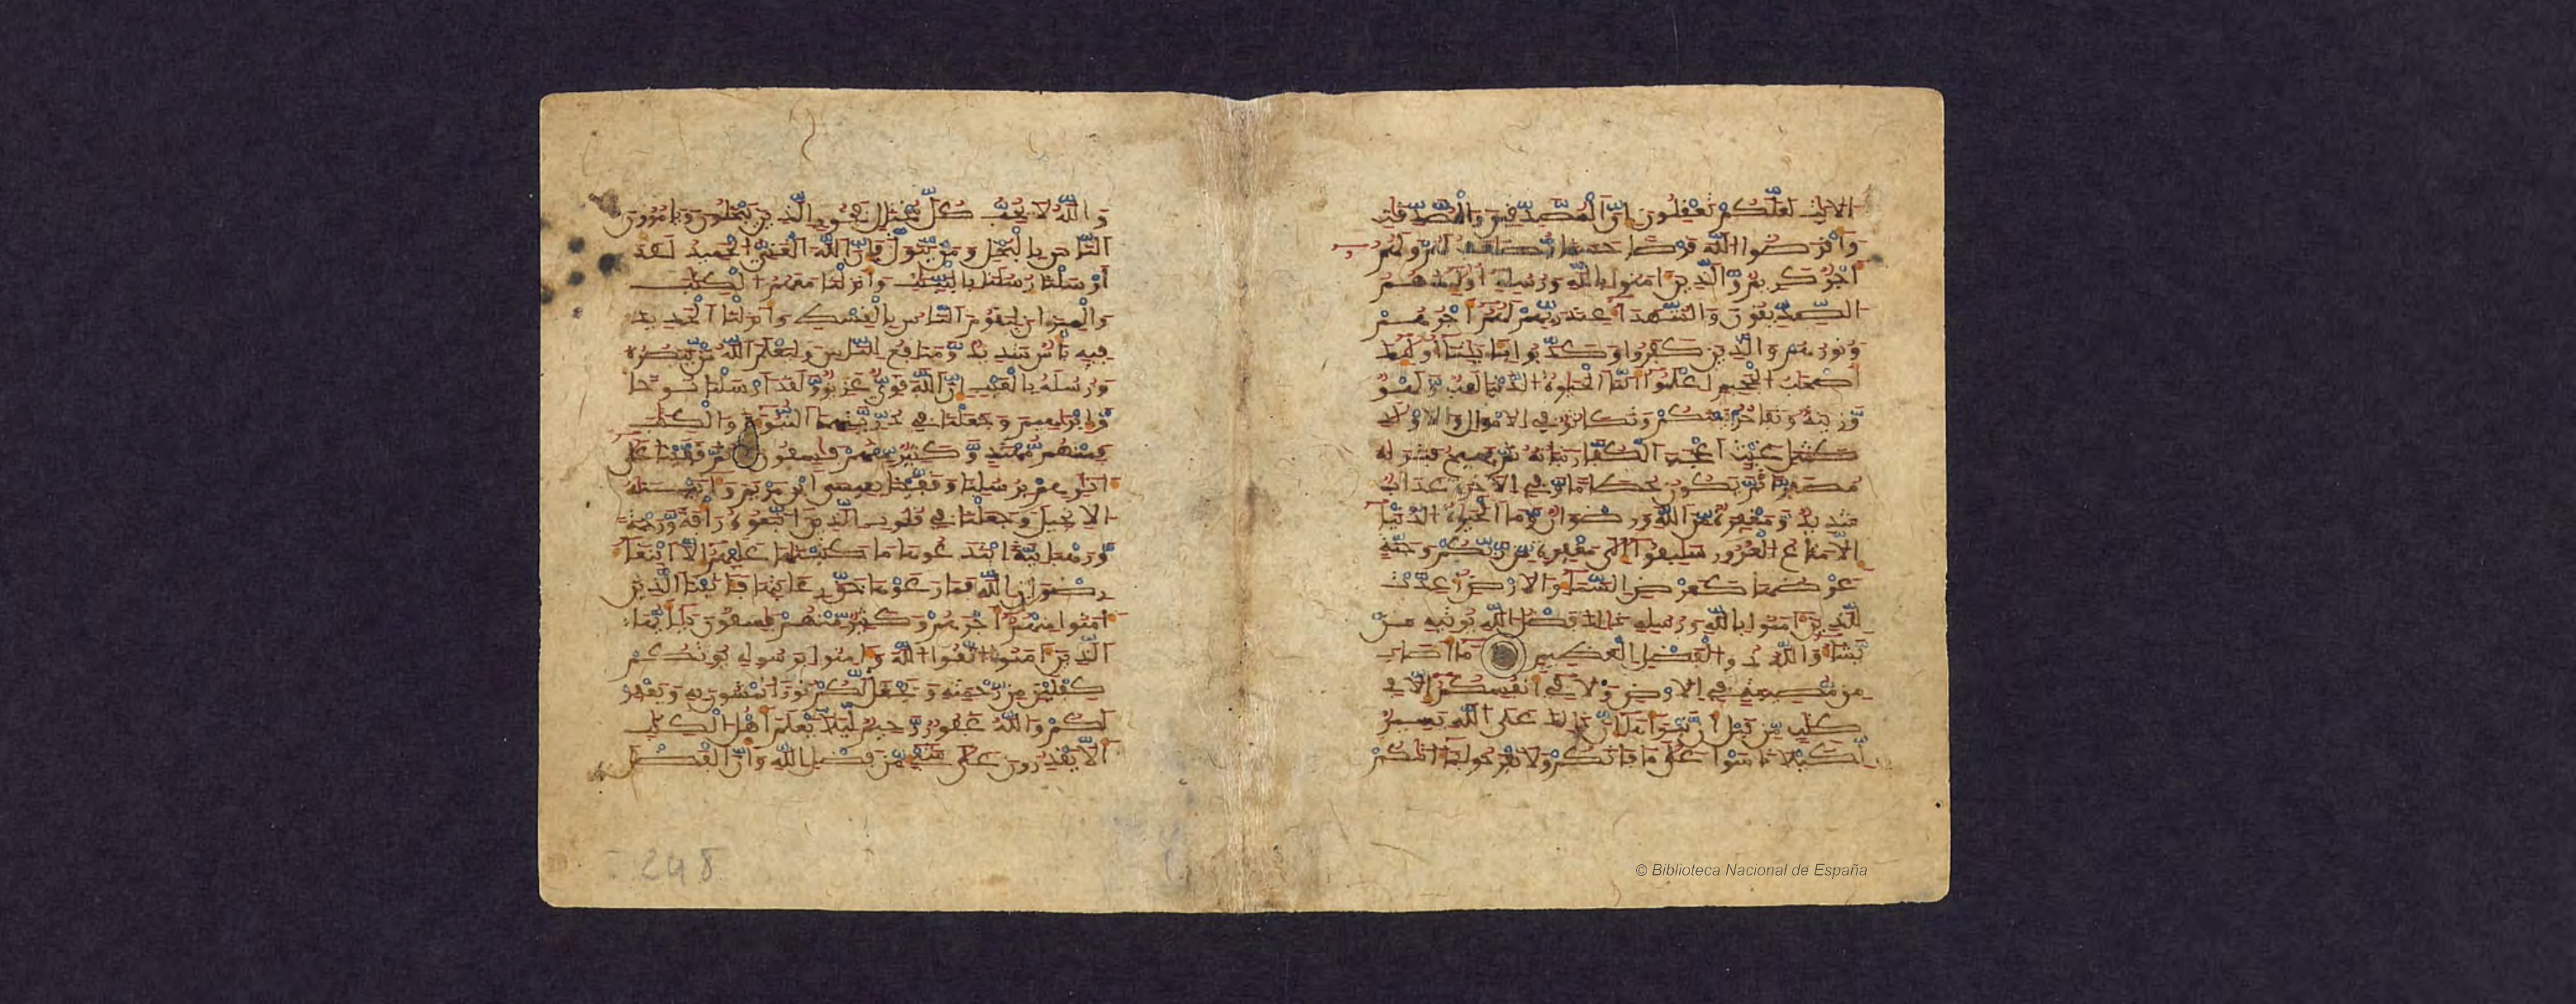 الايت لعلكم تعقلون ان المصدقين والمصدقت
واقرضوا الله قرضا حسنا يضعف لهم ولهم
اجر كريم والذين امنوا بالله ورسله اوليك هم
الصديقون والشهدا عند ربهم لهم اجرهم
ونورهم والذين كفروا وكذبوا بايتنا اوليك
اصحب الجحيم اعلموا انما الحيوة الدنيا لعب ولهو
وزينة وتفاخر بينكم وتكاثر في الامول والاولد
كمثل غيث اعجب الكفار نباته ثم يهيج فتريه
مصفرا ثم يكون حطاما وفي الاخرة عذاب
شديد ومغفرة من الله ورضون وما الحيوة الدنيا
الا متاع الغرور سابقوا الى مغفرة من ربكم وجنة
عرضها كعرض السما والارض اعدت
للذين امنوا بالله ورسله ذلك فضل الله يوتيه من
يشا والله ذو الفضل العظيم ما اصاب
من مصيبة في الارض ولا في انفسكم الا في
كتب من قبل ان نبراها ان ذلك على الله يسير
لكيلا تاسوا على ما فاتكم ولا تفرحوا بما اتيكم
والله لا يحب كل مختال فخور الذين يبخلون ويامرون
الناس بالبخل ومن يتول فان الله الغني الحميد لقد
ارسلنا رسلنا بالبينت وانزلنا معهم الكتب
والميزان ليقوم الناس بالقسط وانزلنا الحديد
فيه باس شديد ومنافع للناس وليعلم الله من ينصره
ورسله بالغيب ان الله قوي عزيز ولقد ارسلنا نوحا
وابرهيم وجعلنا في ذريتهما النبوة والكتب
فمنهم مهتد وكثير منهم فسقون ثم قفينا على
اثرهم برسلنا وقفينا بعيسى ابن مريم واتينه
الانجيل وجعلنا في قلوب الذين اتبعوه رافة ورحمة
ورهبانية ابتدعوها ما كتبنها عليهم الا ابتغا
رضون الله فما رعوها حق رعايتها فاتينا الذين
امنوا منهم اجرهم وكثير منهم فسقون يايها
الذين امنوا اتقوا الله وامنوا برسوله يوتكم
كفلين من رحمته ويجعل لكم نورا تمشون به ويغفر
لكم والله غفور رحيم ليلا يعلم اهل الكتب
الا يقدرون على شي من فضل الله وان الفضل
248
© Biblioteca Nacional de España